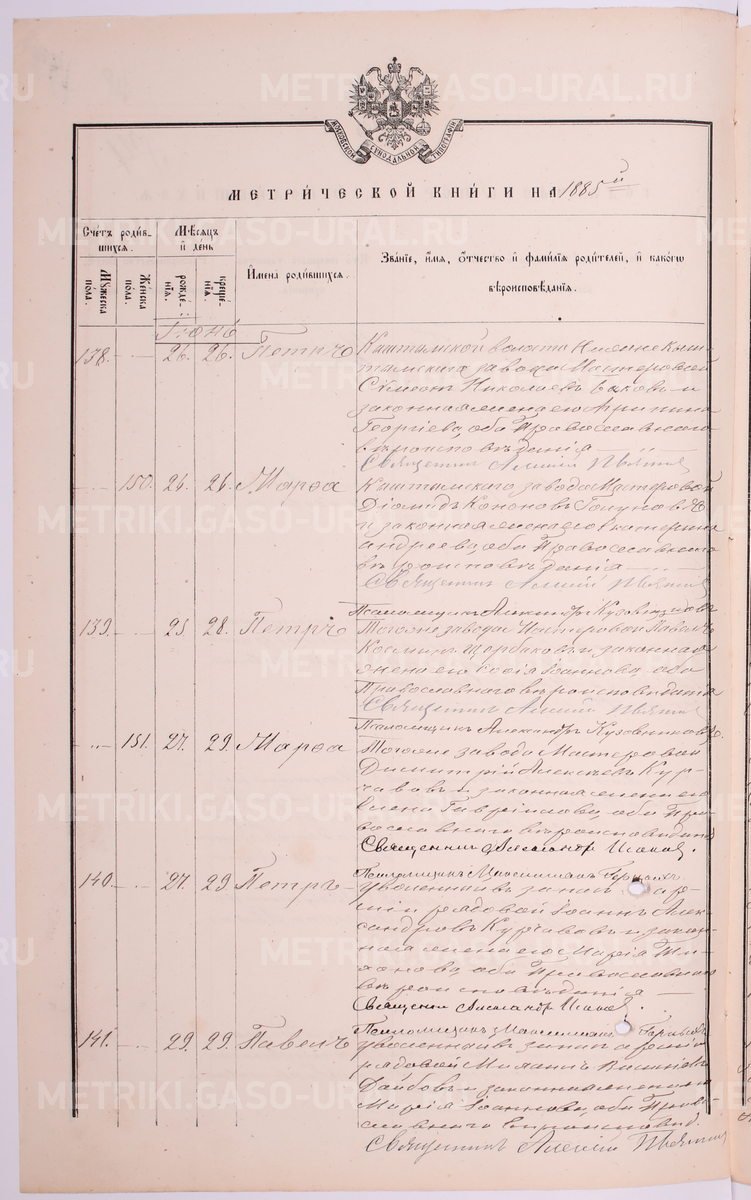 МОСКОВСКОЙ СѴНОДАЛЬНОЙ ТИПОГРАФІИ
МЕТРИ́ЧЕСКОЙ КНИ́ГИ НА 1885й
Сче́тъ роди́в-
шихся.
Мꙋ́жеска
по́ла.
Же́нска
по́ла.
Мѣ́сяцъ
и҆ де́нь
рожде-
нїя.
креще́-
нїя.
И҆мена̀ роди́вшихся.
Зва́нїе, и҆́мя, ѻ҆́тчество и҆ фами́лїя роди́телей, и҆ како́гѡ
вѣроисповѣ́данїя.
Іюнь
138. 26. 26. Петръ
Каштымской волости Нижне Кыш-
тымскаго завода Мастеровой
Сумеонъ Николаевъ и
законная жена его Агрипина
Георгіева, оба Православнаго
вѣроисповѣданія
Священник Алексій
150. 26. 26. Марѳа
Каштымскаго завода Мастеровой
Діомидъ Кононовъ
и законная жена его Екатерина
Андреева, оба Православнаго
вѣроисповѣданія
Священник Алексій
139. 25 28. Петръ
Псаломщик Александръ Кузовниковъ
Тогоже завода Мастеровой Павелъ
Косминъ Щербаковъ и законная
жена его Софія Іоаннова, оба
Православнаго вѣроисповѣданія
Священник Алексій
151. 27. 29. Марѳа
Псаломщик Александръ Кузовниковъ
Тогоже завода Мастеровой
Димитрій Алексѣевъ Кур-
чавовъ и законная жена его
Елена Гавріилова, оба Пра-
вославнаго вѣроисповѣданія
Священник Александр Исаков.
140. 27. 29 Петръ
Псаломщик Максимилиан
Уволенный въ запас ар-
міи рядовой Іоаннъ Алек-
сандровъ Курчавовъ и закон-
ная жена его Марія Ти-
хонова, оба Православнаго
вѣроисповѣданія
Священник Александр Исаков.
141. 29. 29. Павелъ
Псаломщик Максимилиан
Уволенный въ запас арміи
рядовой
и законная жена его
Марія Іоаннова, оба Право-
славнаго вѣроисповѣд.
Священник Алексій
METRIKI.GASO-URAL.RU